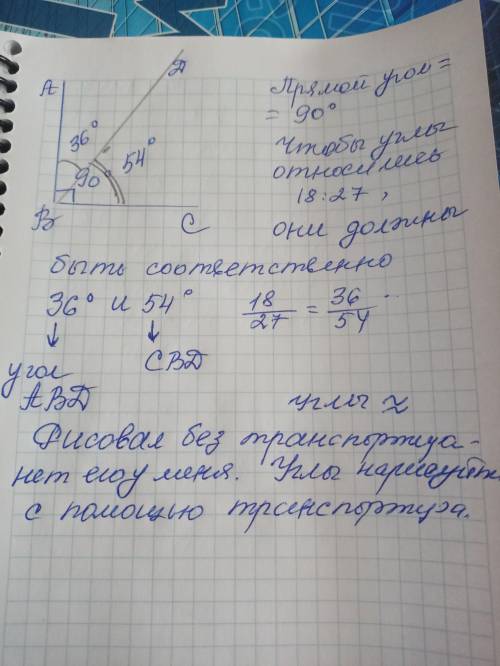 A
D
36°
54°
90
B
C
Прямой угол =
= 90°
Чтобы углы
относились
18:27,
они должны
быть соответственно
36° и 54°
18/27 = 36/54
↓ ↓
угол
ABD
CBD
углы
Рисовал без транспортира-
нет его у меня. Углы нарисуйте
с помощью транспортира.